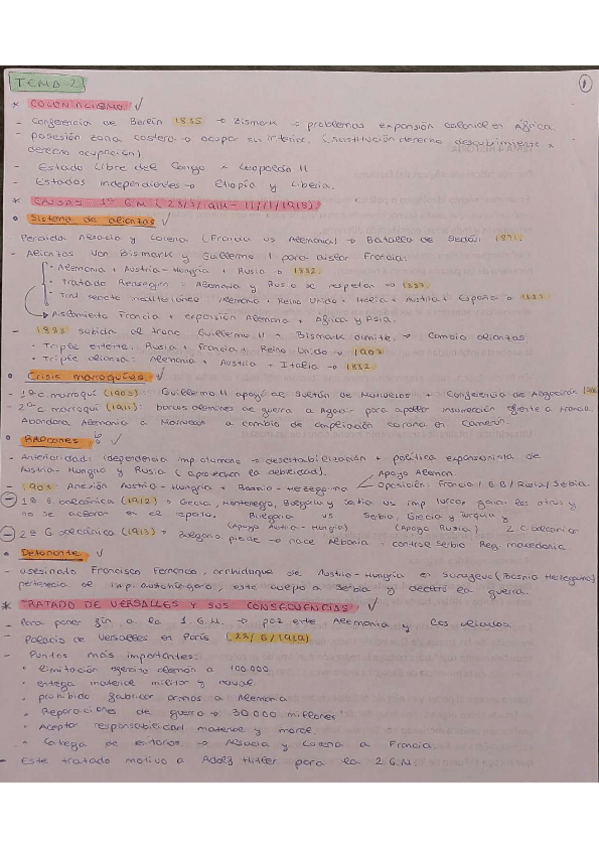 TEMA 2
1
* COLONIALISMO ✓
- Conferencia de Berlín 1885 → Bismark → problemas expansión colonial en África.
- posesión zona costera → ocupar su interior. (sustitución derecho descubrimiento x
derecho ocupación)
- Estado Libre del Congo - Leopoldo II
- Estados independientes → Etiopía y Liberia.
* CAUSAS 1ª G.M (28/7/1914 - 11/11/1918)
• Sistema de alianzas ✓
Perdida Alsacia y Lorena (Francia vs Alemania) → Batalla de Sedán: 1871.
- Alianzas Von Bismark y Guillermo I para aislar Francia:
• Alemania + Austria-Hungría + Rusia →
• Tratado : Alemania y Rusia se respetan → 1887.
• Alemania + Reino Unido + Italia + Austria + España → 1887
→ Aislamiento Francia + expansión Alemana + África y Asia.
- subida al trono Guillermo II → Bismark dimite → Cambia alianzas
• Triple entente: Rusia + Francia + Reino Unido → 1907
• Triple alianza: Alemania + Austria + Italia → 1882
• Crisis marroquíes ✓
- 1ª C. marroquí (1905): Guillermo II apoyó al Sultán de Marruecos + Conferencia de
- 2ª C. marroquí (1911): barcos alemanes de guerra a Agadir para apoyar insurrección frente a Francia.
Abandona Alemania a Marruecos a cambio de ampliación colonia en Camerún.
• BALCANES ✓
- Anterioridad: independencia imp. otomano → desestabilización + política expansionista de
Austria-Hungría y Rusia (aprovechan la debilidad).
Apoyo Alemán.
- 1908: Anexión Austria-Hungría + Bosnia-Herzegovina
oposición: Francia / G.B / Rusia / Serbia.
- 1ª G. balcánica (1912) → Grecia, Montenegro, Bulgaria y Serbia vs imp turco, ganan los otros y
no se aclaran en el reparto. Bulgaria vs Serbia, Grecia y Turquía
(Apoyo Austria-Hungría) (Apoyo Rusia) 2 G. balcánica
- 2ª G balcánica (1913) → Bulgaria pierde → nace Albania - control Serbio Reg. macedonia
• Detonante ✓
- asesinato Francisco Fernando, archiduque de Austria-Hungría en Sarajevo (Bosnia Herzegovina)
pertenecía al imp. austrohúngaro, este culpó a Serbia y declaró la guerra.
* TRATADO DE VERSALLES Y SUS CONSECUENCIAS ✓
- Para poner fin a la 1 G.M. → paz entre Alemania y los aliados
- Palacio de Versalles en París (28/6/1919)
- Puntos más importantes:
• limitación ejército alemán a 100.000
• entrega material militar y naval.
• prohibido fabricar armas a Alemania
• Reparaciones de guerra → 30.000 millones
• Aceptar responsabilidad material y moral
• Entrega de → Alsacia y Lorena a Francia.
- Este tratado motivó a Adolf Hitler para la 2 G.M